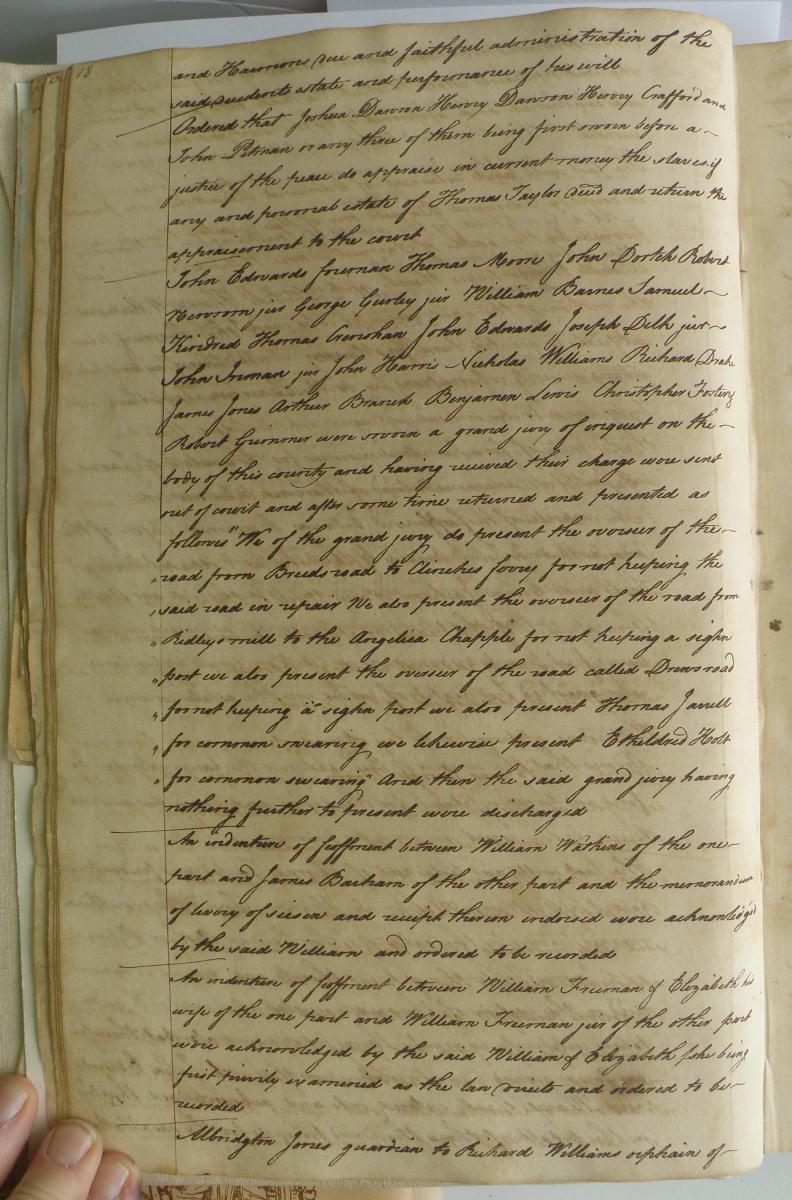 18
and Harrisons due and faithful administration of the
said decedents estate and performance of his will
Ordered that Joshua Dawson Henry Dawson Henry Crafford and
John Pitman or any three of them being first sworn before a
justice of the peace do appraise in current money the slaves if
any and personal estate of Thomas Taylor decd and return the
appraisement to the court
John Edwards foreman Thomas Moore John Dortch Robert
Newsom jur George Gurley jur William Barnes Samuel
Kindred Thomas Crenshaw John Edwards Joseph Delk jur
John Inman jur John Harris Nicholas Williams Richard Drake
James Jones Arthur Branch Benjamen Lewis Christopher Foster &
Robert Grimmer were sworn a grand jury of inquest on the
body of this county and having received their charge were sent
out of court and after some time returned and presented as
follows "We of the grand jury do present the overseer of the
"road from Breedsroad to Clinches ferry for not keeping the
"said road in repair We also present the overseer of the road from
"Ridleys mill to the Angelica Chapple for not keeping a sighn
"post we also present the overseer of the road called Drewsroad
"for not keeping a sighn post we also present Thomas Jarrell
"for common swearing we likewise present Etheldred Holt
"for common swearing" And then the said grand jury having
nothing further to present were discharged
An indenture of feoffment between William Watkins of the one
part and James Barham of the other part and the memorandum
of livery of seisen and receipt thereon indorsed were acknowledged
by the said William and ordered to be recorded
An indenture of feoffment between William Freeman & Elizabeth his
wife of the one part and William Freeman jur of the other part
were acknowledged by the said William & Elizabeth she being
first privily examined as the law directs and ordered to be
recorded
Albridgton Jones guardian to Richard Williams orphain of